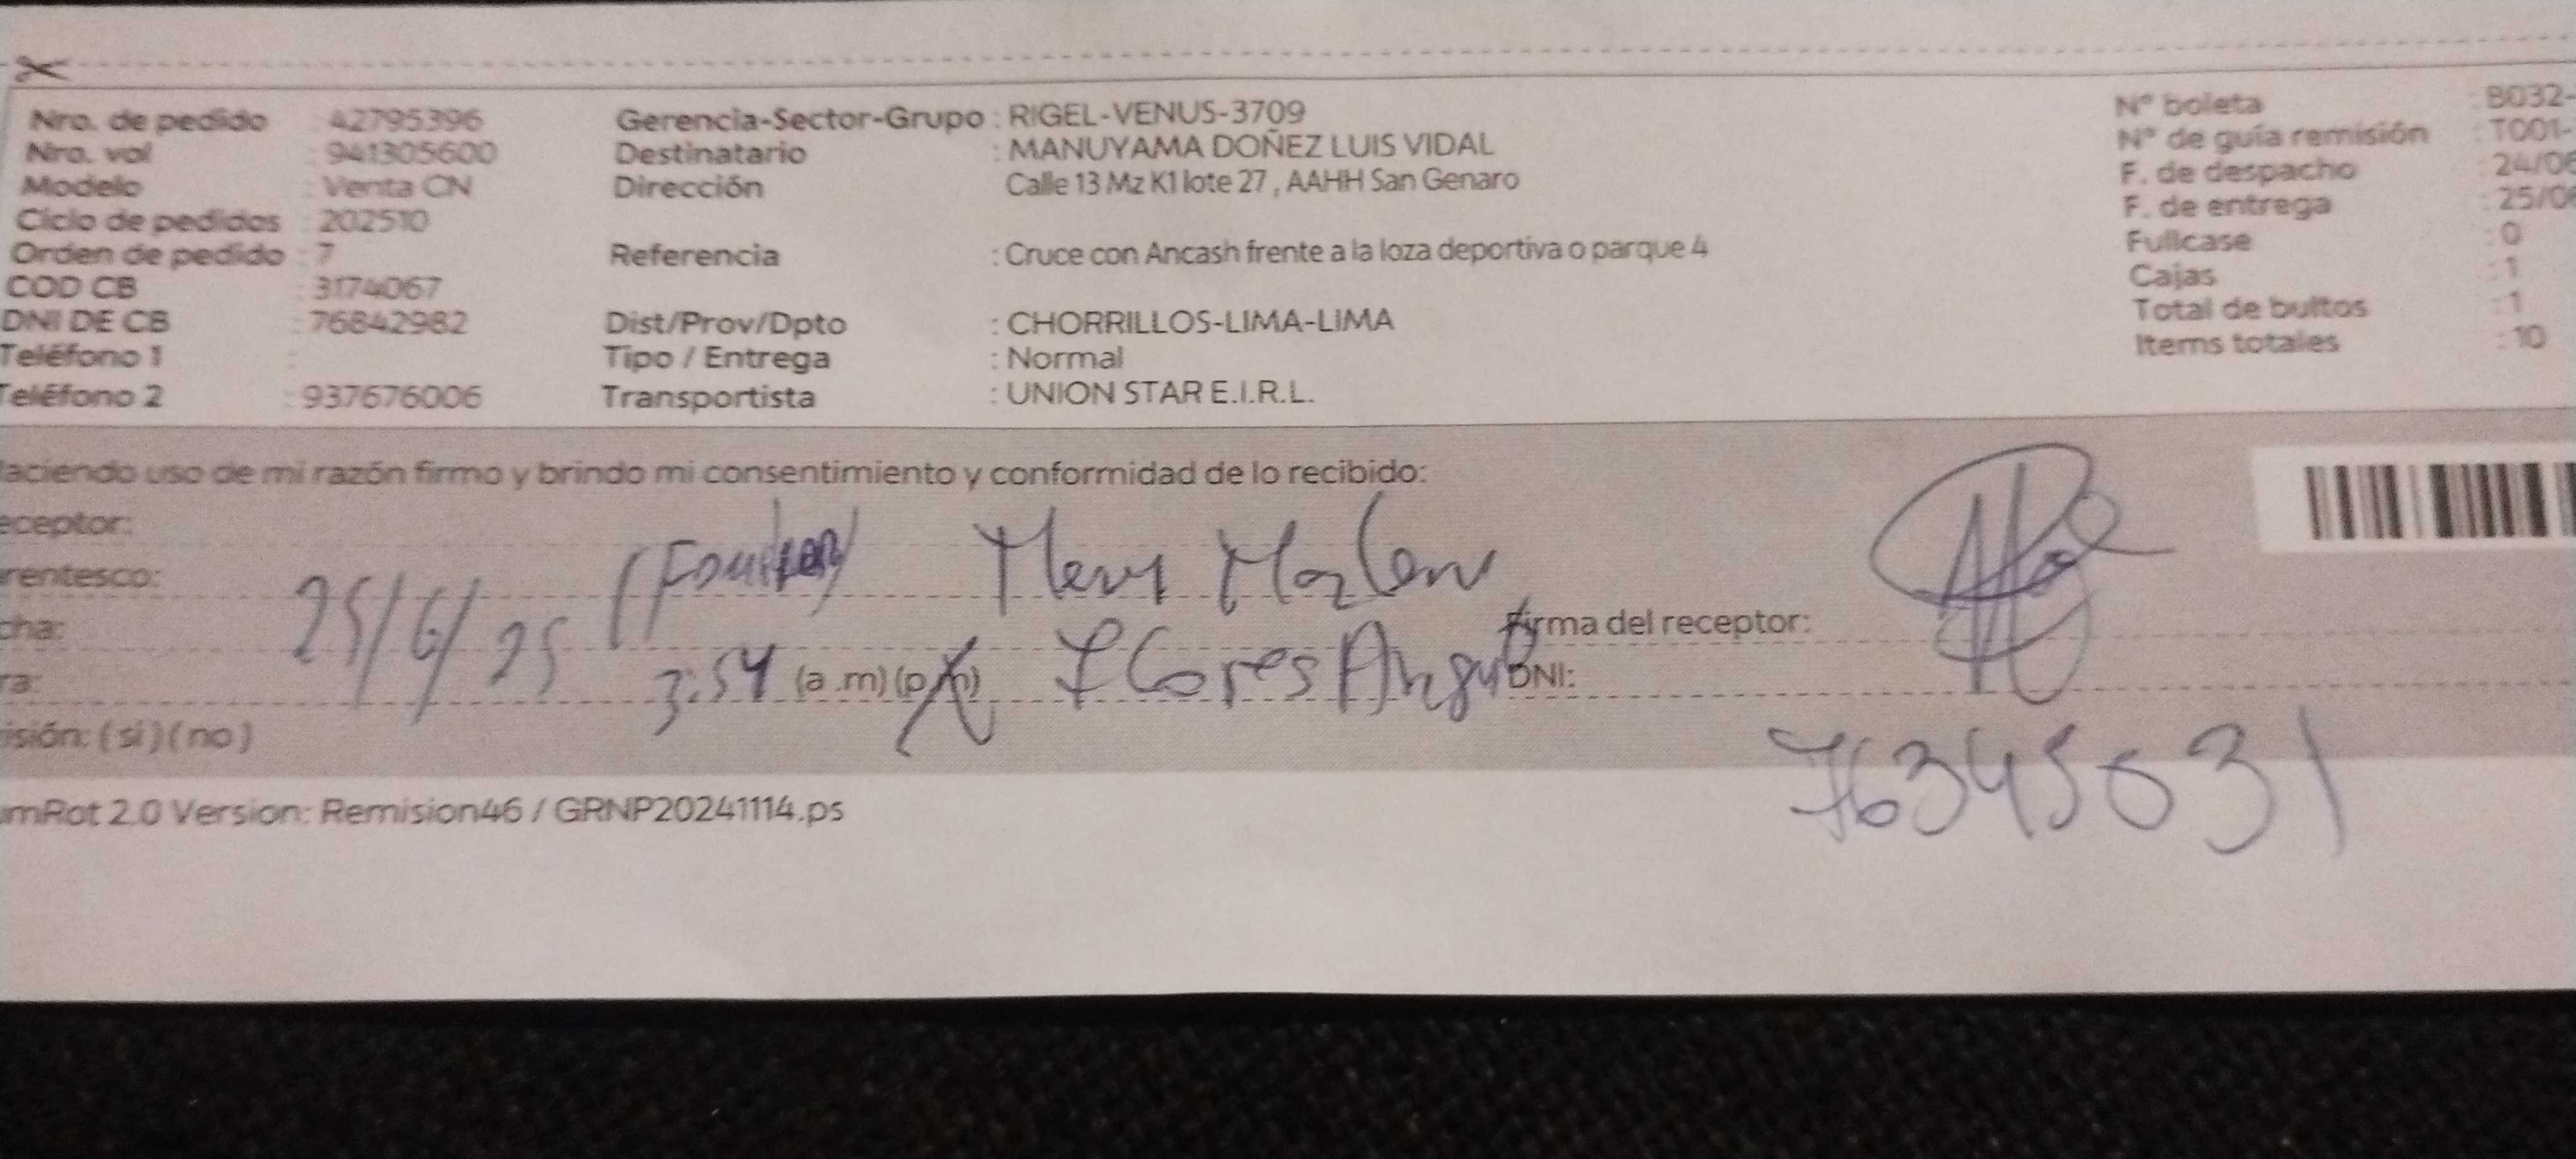 Nro. de pedido : 42795396 Gerencia-Sector-Grupo : RIGEL-VENUS-3709 N° boleta : B032-
Nro. vol : 941305600 Destinatario : MANUYAMA DOÑEZ LUIS VIDAL N° de guía remisión : T001-
Modelo : Venta CN Dirección Calle 13 Mz K1 lote 27 , AAHH San Genaro F. de despacho : 24/06
Ciclo de pedidos : 202510 F. de entrega : 25/06
Orden de pedido : 7 Referencia : Cruce con Ancash frente a la loza deportiva o parque 4 Fullcase : 0
COD CB : 3174067 Cajas : 1
DNI DE CB : 76842982 Dist/Prov/Dpto : CHORRILLOS-LIMA-LIMA Total de bultos : 1
Teléfono 1 : Tipo / Entrega : Normal Items totales : 10
Teléfono 2 : 937676006 Transportista : UNION STAR E.I.R.L.
aciendo uso de mi razón firmo y brindo mi consentimiento y conformidad de lo recibido:
eceptor:
rentesco:
cha: 25/6/25 Firma del receptor:
ra: 3:54 (a .m) (p.m) Flores Angulo DNI: 76345031
isión: ( sí ) ( no )
mRot 2.0 Version: Remision46 / GRNP20241114.ps